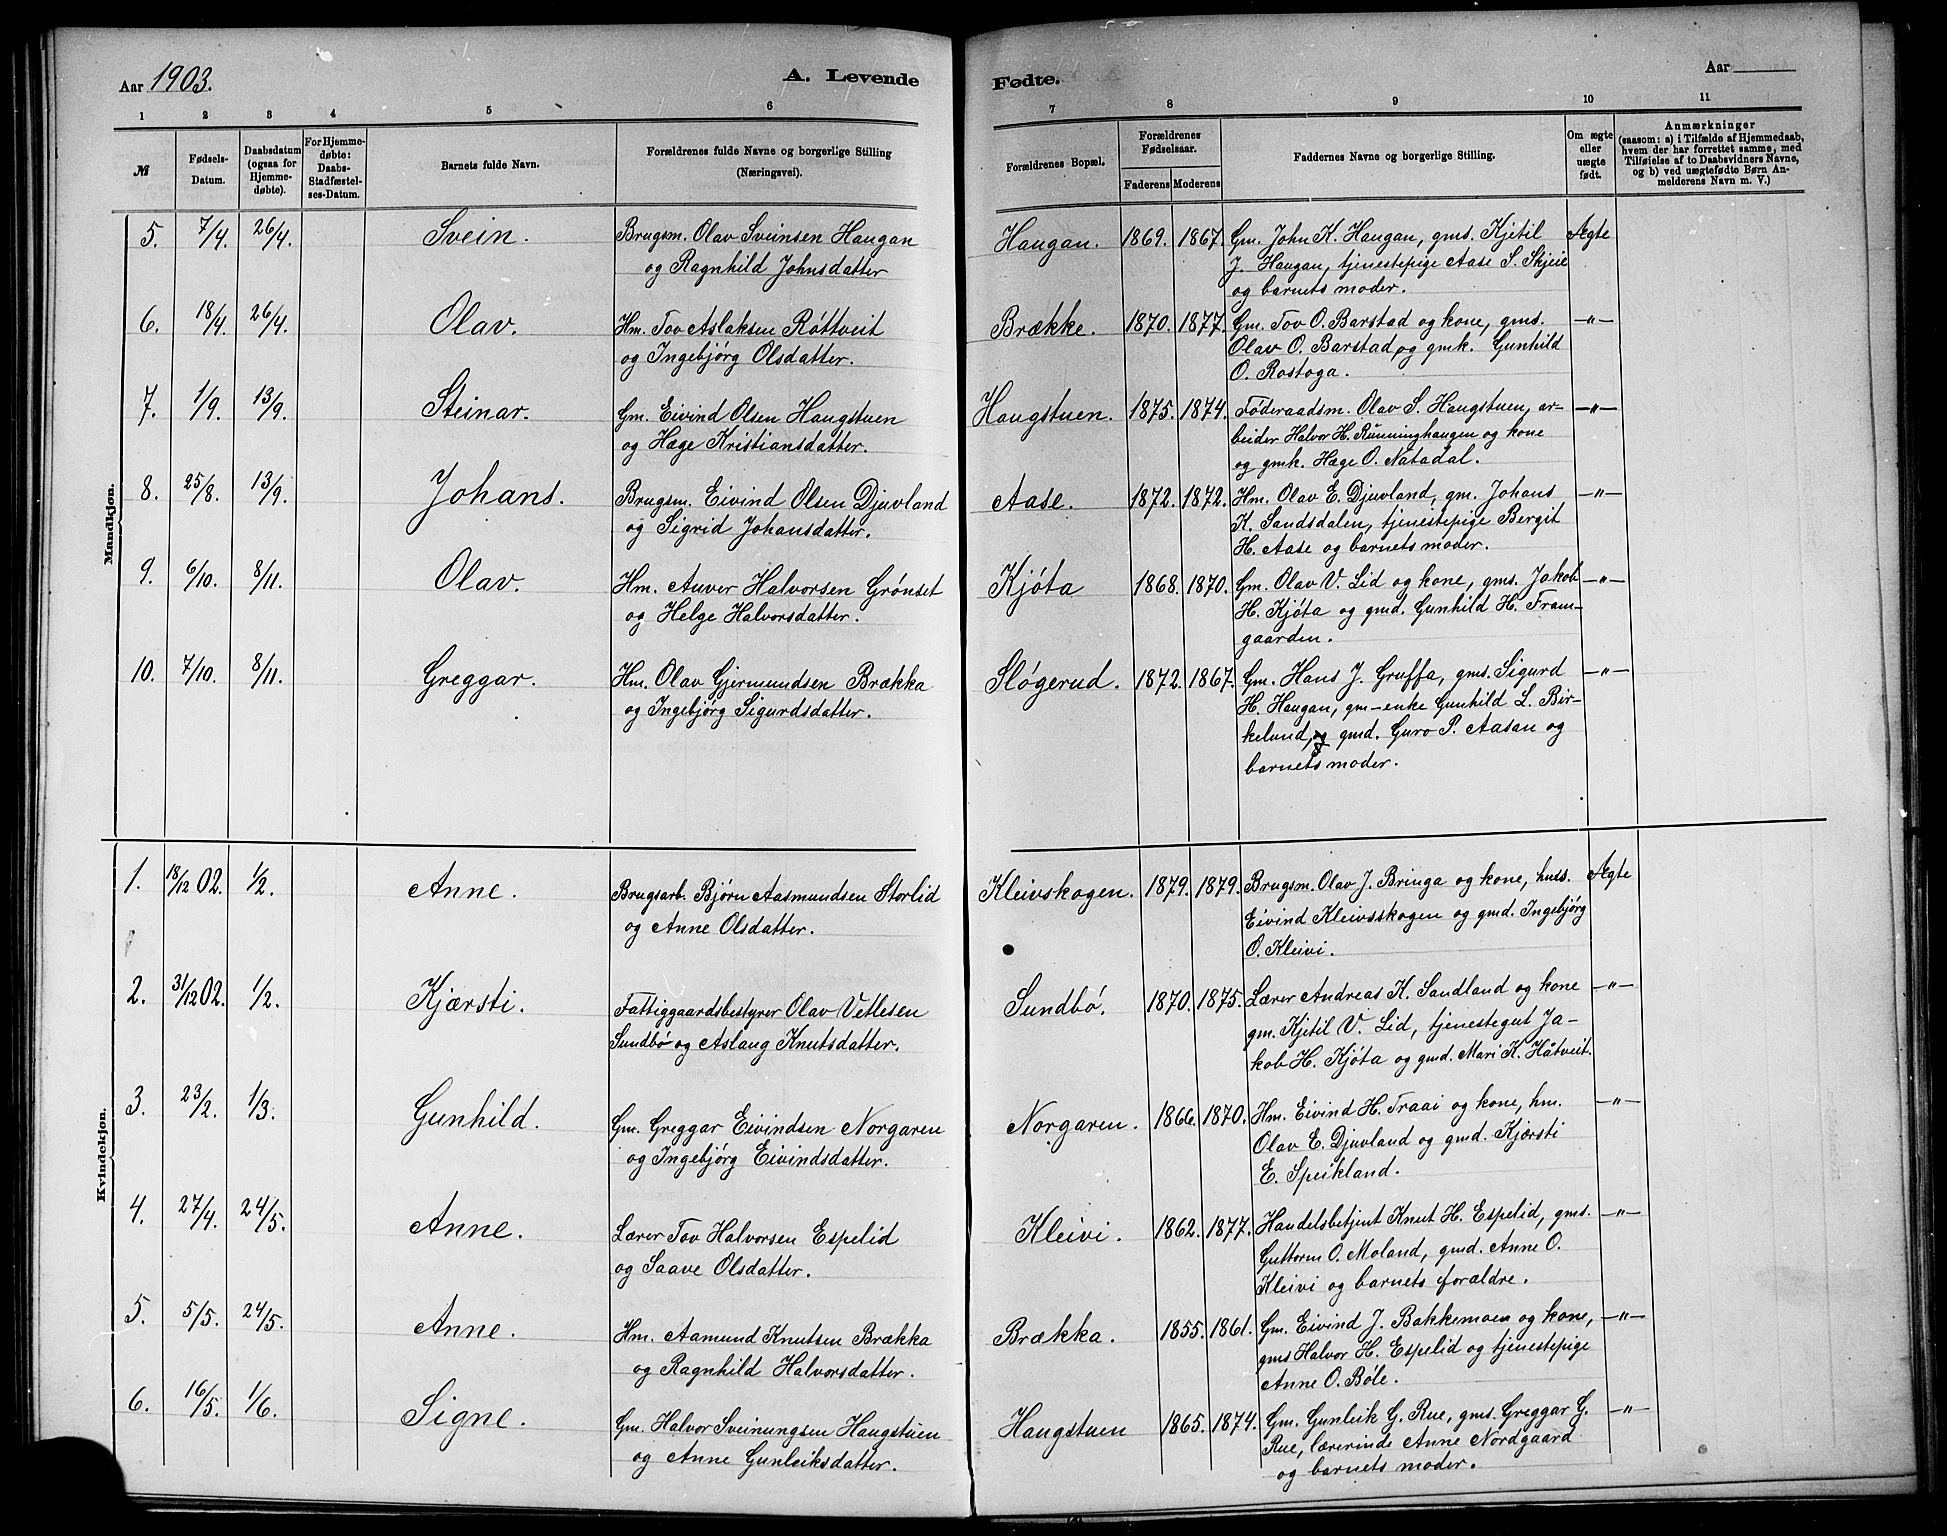 Aar 1903.
A. Levende
1 2 3 4 5 6
№
Fødsels-Datum.
Daabsdatum (ogsaa for Hjemme-døbte).
For Hjemme-døbte: Daabs-Stadfæstel-ses-Datum.
Barnets fulde Navn.
Forældrenes fulde Navne og borgerlige Stilling (Næringsvei).
Mandkjøn.
5. 7/4. 26/4. Svein. Brugsm. Olav Sveinsen Haugan
og Ragnhild Johnsdatter
6. 18/4. 26/4. Olav. Hm. Tov Aslaksen Røttveit
og Ingebjörg Olsdatter.
7. 1/9. 13/9. Steinar. Gm. Eivind Olsen Haugstuen
og Hæge Kristiansdatter.
8. 25/8. 13/9. Johans. Brugsm. Eivind Olsen Djuvland
og Sigrid Johansdatter.
9. 6/10. 8/11. Olav. Hm. Auver Halvorsen Grönset
og Helge Halvorsdatter.
10. 7/10. 8/11. Greggar. Hm. Olav Gjermundsen Brækka
og Ingebjörg Sigurdsdatter.
Kvindekjøn.
1. 18/12 02. 1/2. Anne. Brugsarb. Björn Aasmundsen Storlid
og Anne Olsdatter.
2. 31/12 02. 1/2. Kjærsti. Fattiggaardsbestyrer Olav Vetlesen
Sundbö og Aslaug Knutsdatter.
3. 23/2. 1/3. Gunhild. Gm. Greggar Eivindsen Norgaren
og Ingebjörg Eivindsdatter.
4. 27/4. 24/5. Anne. Lærer Tov Halvorsen Espelid
og Saave Olsdatter.
5. 5/5. 24/5. Anne. Hm. Aamund Knutsen Brækka
og Ragnhild Halvorsdatter.
6. 16/5. 1/6. Signe. Gm. Halvor Sveinungsen Haugstuen
og Anne Gunleiksdatter.
Fødte.
Aar
7 8 9 10 11
Forældrenes Bopæl.
Forældrenes Fødselsaar.
Faderens Moderens
Faddernes Navne og borgerlige Stilling.
Om ægte eller uægte født.
Anmærkninger
(saasom: a) i Tilfælde af Hjemmedaab,
hvem der har forrettet samme, med
Tilføielse af to Daabsvidners Navne,
og b) ved uægtefødte Børn An-
melderens Navn m. V.)
Haugan. 1869. 1867. Gm. John K. Haugan, gms. Kjetil Ægte
J. Haugan, tjenestepige Aase S. Skjeie
og barnets moder.
Brække. 1870. 1877. Gm. Tov O. Barstad og kone, gms. —"—
Olav O. Barstad og gmk. Gunhild
O. Rostoga.
Haugstuen. 1875. 1874. Föderaadsm. Olav S. Haugstuen, ar- —"—
beider Halvor H. Rünninghaugen og kone
og gmk. Hæge O. Natadal.
Aase. 1872. 1872. Hm. Olav E. Djuvland, gm. Johans —"—
K. Sandsdalen, tjenestepige Bergit
H. Aase og barnets moder.
Kjöta 1868. 1870. Gm. Olav V. Lid og kone, gms. Jakob —"—
H. Kjöta og gmd. Gunhild H. Fram-
gaarden.
Slögerud. 1872. 1867. Gm. Hans J. Gruffa, gms. Sigurd —"—
H. Haugan, gm-enke Gunhild L. Bir-
kelund, og gmd. Guro P. Aasan og
barnets moder.
Kleivskogen. 1879. 1879. Brugsm. Olav J. Bringa og kone, hms. Ægte
Eivind Kleivsskogen og gmd. Ingebjörg
O. Kleivi.
Sundbö. 1870. 1875. Lærer Andreas K. Sandland og kone —"—
gm. Kjetil V. Lid, tjenestegut Ja-
kob H. Kjöta og gmd. Mari K. Håtveit.
Norgaren. 1866. 1870. Hm. Eivind H. Traai og kone, hm. —"—
Olav E. Djuvland og gmd. Kjærsti
E. Speikland.
Kleivi. 1862. 1877. Handelsbetjent Knut H. Espelid, gms. —"—
Guttorm O. Moland, gmd. Anne O.
Kleivi og barnets forældre.
Brækka. 1855. 1861. Gm. Eivind J. Bakkemoen og kone, —"—
gms Halvor H. Espelid og tjenestepige
Anne O. Böle.
Haugstuen 1865. 1874. Gm. Gunleik G. Rue, gms. Greggar G. —"—
Rue, lærerinde Anne Nordgaard
og barnets moder.